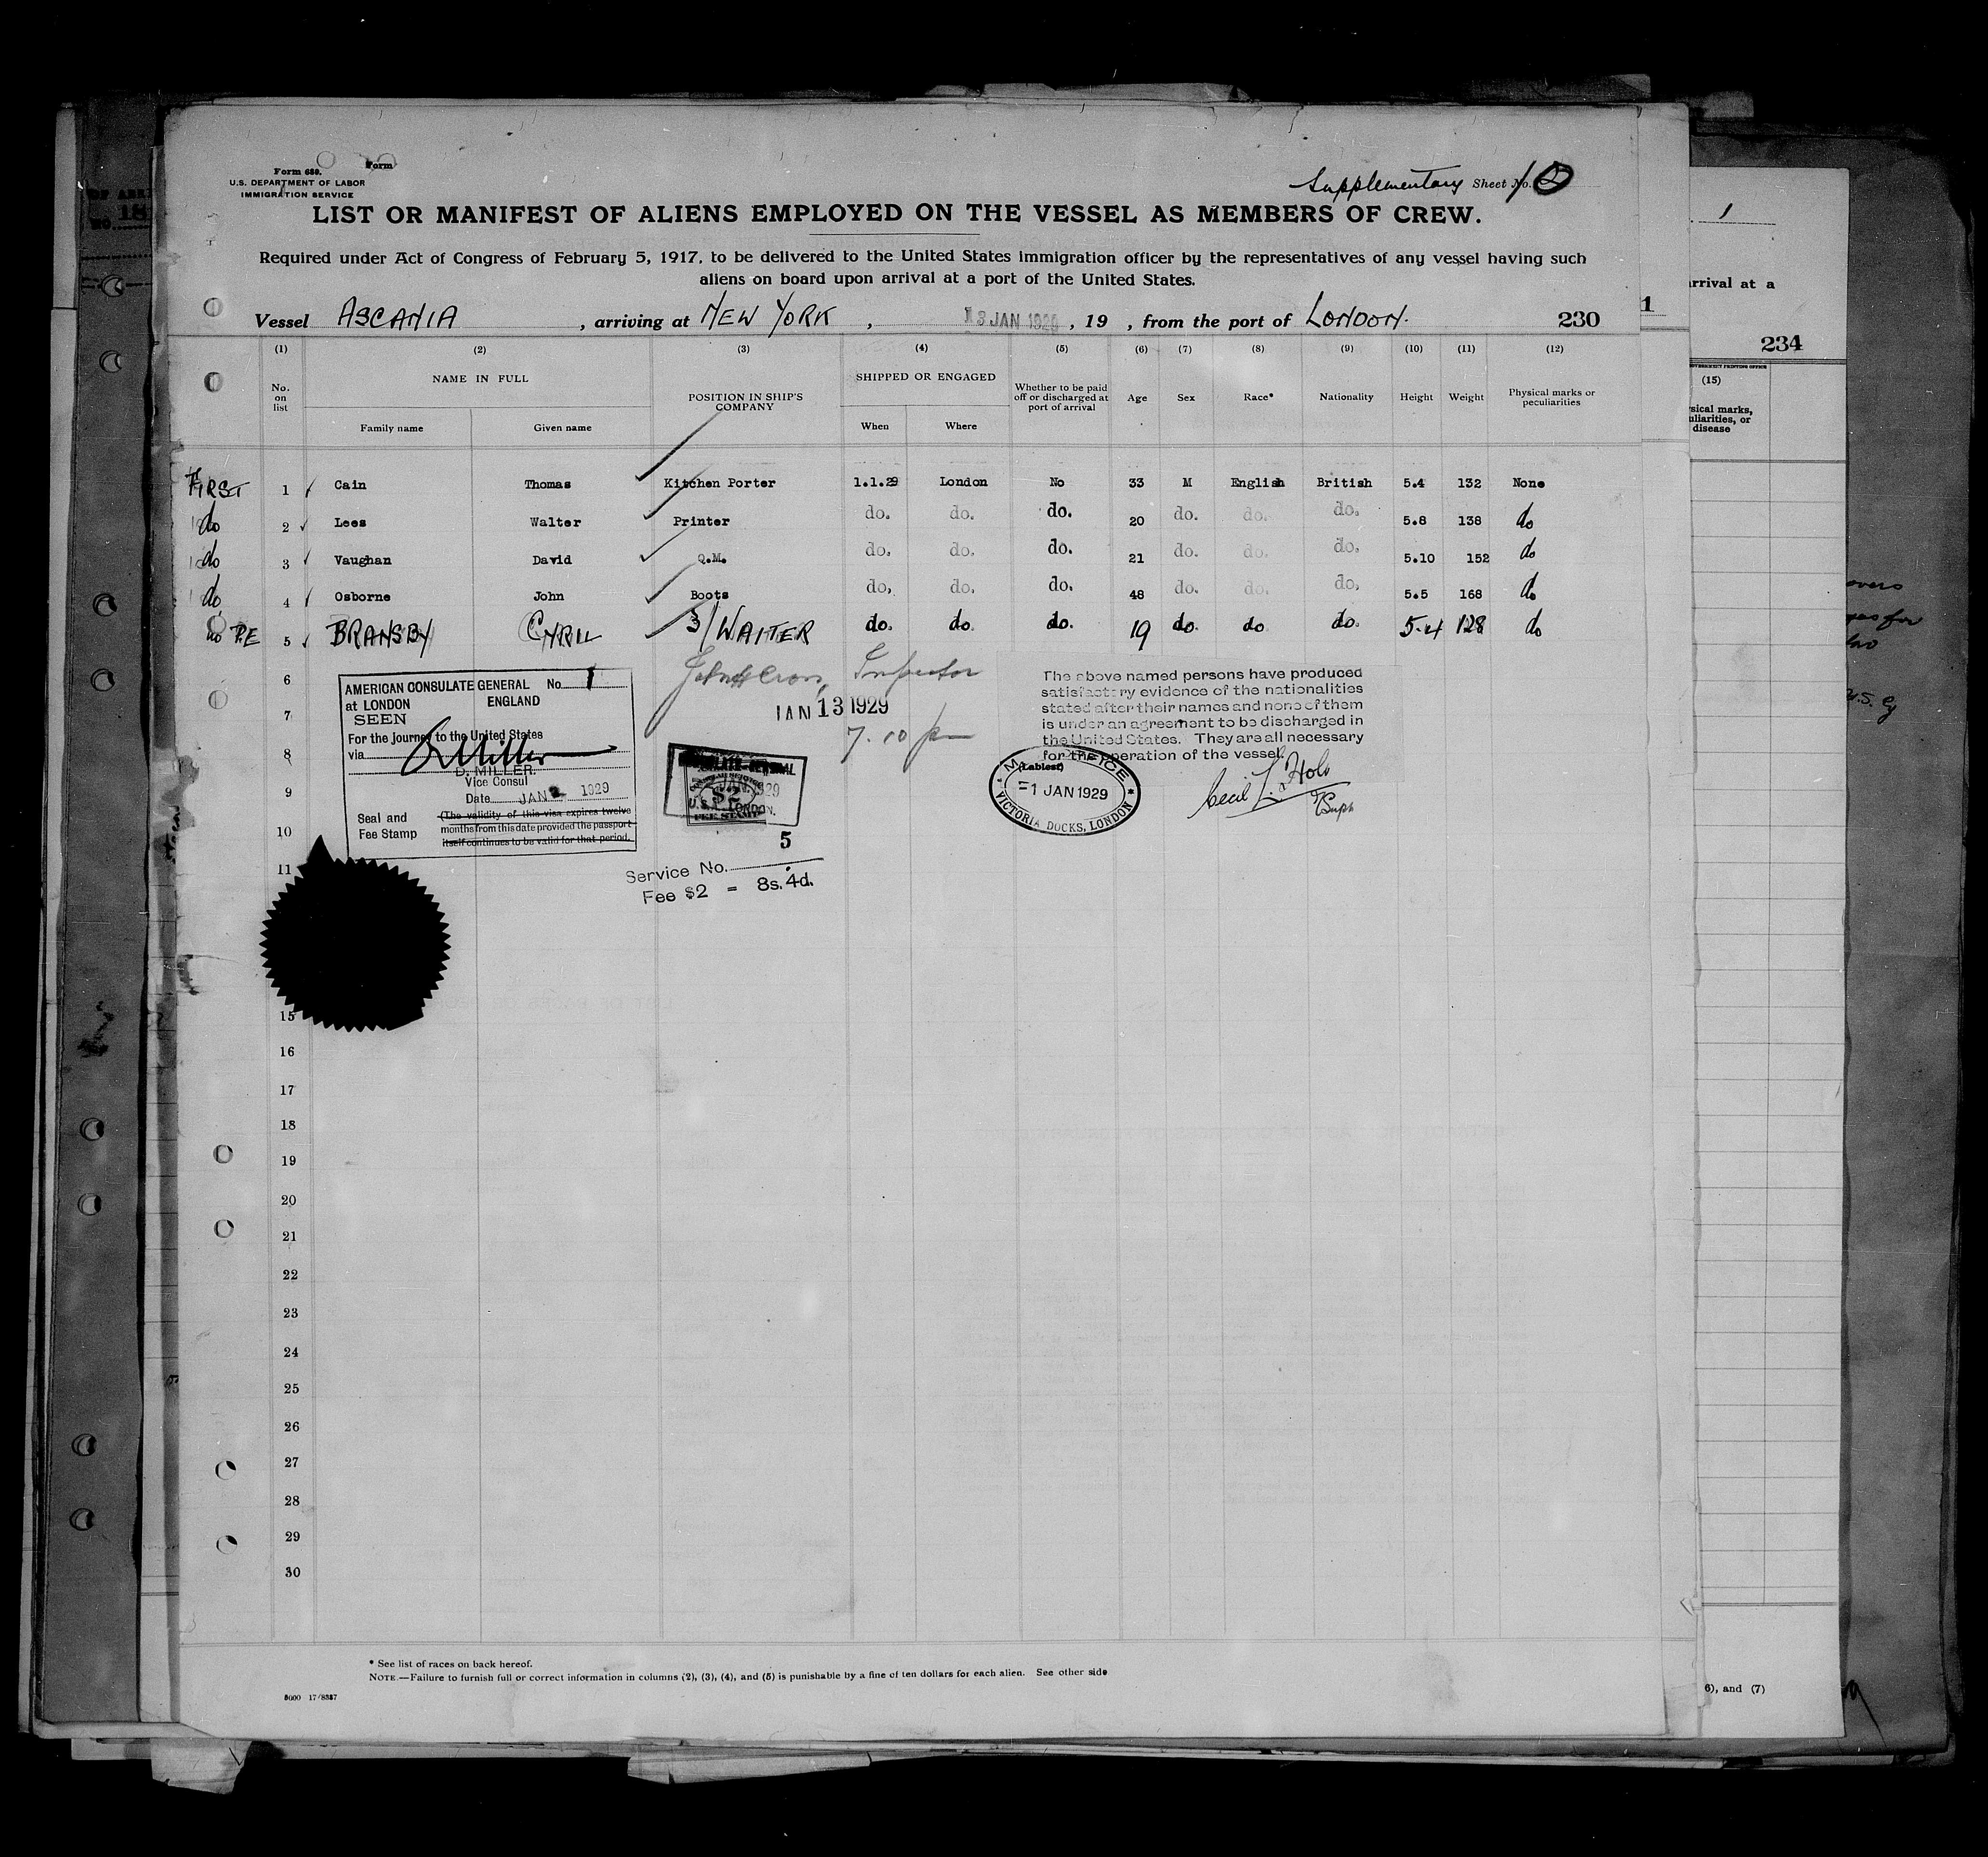 Form 680. Form
U.S. DEPARTMENT OF LABOR
IMMIGRATION SERVICE
Supplementary Sheet No.
LIST OR MANIFEST OF ALIENS EMPLOYED ON THE VESSEL AS MEMBERS OF CREW.
Required under Act of Congress of February 5, 1917, to be delivered to the United States immigration officer by the representatives of any vessel having such
aliens on board upon arrival at a port of the United States.
Vessel ASCANIA , arriving at NEW YORK , 13 JAN 1929 , 19 , from the port of LONDON. 230
(1) (2) (3) (4) (5) (6) (7) (8) (9) (10) (11) (12)
No. on list NAME IN FULL POSITION IN SHIP'S COMPANY SHIPPED OR ENGAGED Whether to be paid off or discharged at port of arrival Age Sex Race* Nationality Height Weight Physical marks or peculiarities
Family name Given name When Where
FIRST 1 Cain Thomas Kitchen Porter 1.1.29 London No 33 M English British 5.4 132 None
do 2 Lees Walter Printer do. do. do. 20 do. do. do. 5.8 138 do
do 3 Vaughan David Q.M. do. do. do. 21 do. do. do. 5.10 152 do
do 4 Osborne John Boots do. do. do. 48 do. do. do. 5.5 168 do
P.E 5 BRANSBY CYRIL WAITER do. do. do. 19 do. do do. 5.4 128 do
6
7
8
9
10
11
15
16
17
18
19
20
21
22
23
24
25
26
27
28
29
30
AMERICAN CONSULATE GENERAL No. 1
at LONDON ENGLAND
SEEN
For the journey to the United States
via
D. MILLER.
Vice Consul
Date JAN 2 1929
Seal and
Fee Stamp
(The validity of this visa expires twelve
months from this date provided the passport
itself continues to be valid for that period.
Inspector
JAN 13 1929
7.10 pm
$2
FEE STAMP
LONDON.
5
Service No.
Fee $2 = 8s. 4d.
The above named persons have produced
satisfactory evidence of the nationalities
stated after their names and none of them
is under an agreement to be discharged in
the United States. They are all necessary
for the operation of the vessel.
-1 JAN 1929
VICTORIA DOCKS, LONDON
* See list of races on back hereof.
NOTE.—Failure to furnish full or correct information in columns (2), (3), (4), and (5) is punishable by a fine of ten dollars for each alien. See other side
1
arrival at a
1
234
(15)
6), and (7)